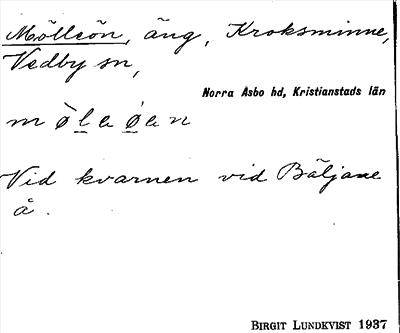 Mölleön, äng, Kroksminne,
Vedby sn,
Norra Åsbo hd, Kristianstads län
Vid kvarnen vid Bäljane
å.
BIRGIT LUNDKVIST 1937